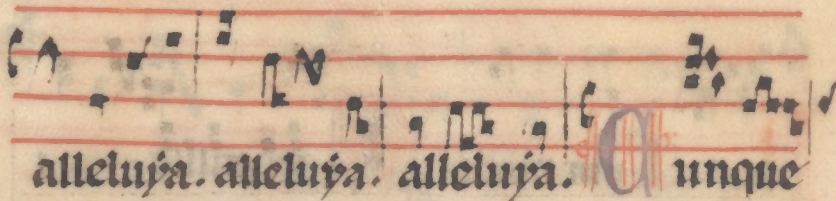 alleluÿa. alleluÿa. alleluÿa. Cunque